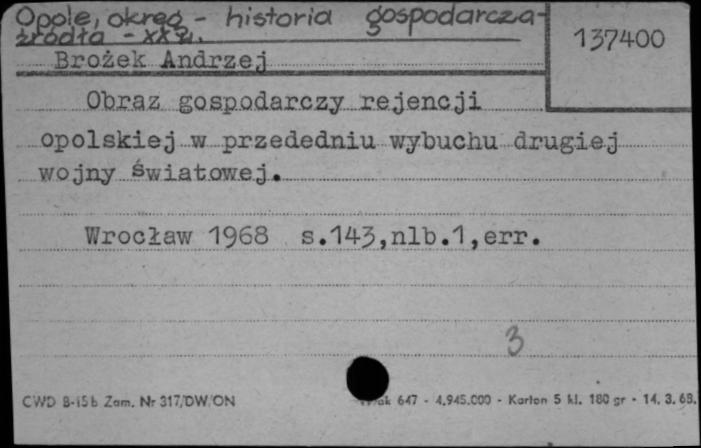 Opole, okręg - historia gospodarcza-
źródła - XX w.
137400
Brożek Andrzej
Obraz gospodarczy rejencji
opolskiej w przededniu wybuchu drugiej
wojny światowej.
Wrocław 1968 s.143,nlb.1,err.
3
CWD B-15b Zam. Nr 317/DW/ON
647 - 4.945.000 - Karton 5 kl. 180 gr - 14. 3. 68.